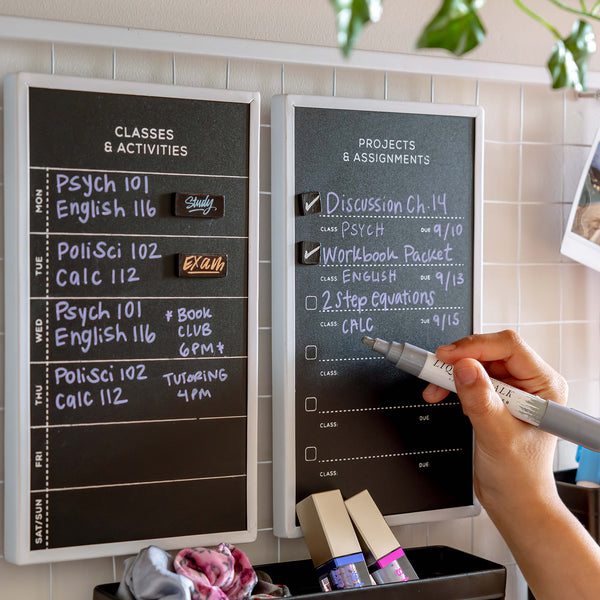 CLASSES
& ACTIVITIES
MON
Psych 101
English 116
Study
TUE
PoliSci 102
Calc 112
EXAM
WED
Psych 101
English 116
* BOOK
CLUB
6PM *
THU
PoliSci 102
Calc 112
TUTORING
4PM
FRI
SAT/SUN
PROJECTS
& ASSIGNMENTS
Discussion Ch.14
CLASS: PSYCH DUE: 9/10
Workbook Packet
CLASS: ENGLISH DUE: 9/13
2 Step equations
CLASS: CALC DUE: 9/15
CLASS:
CLASS: DUE:
CLASS: DUE: